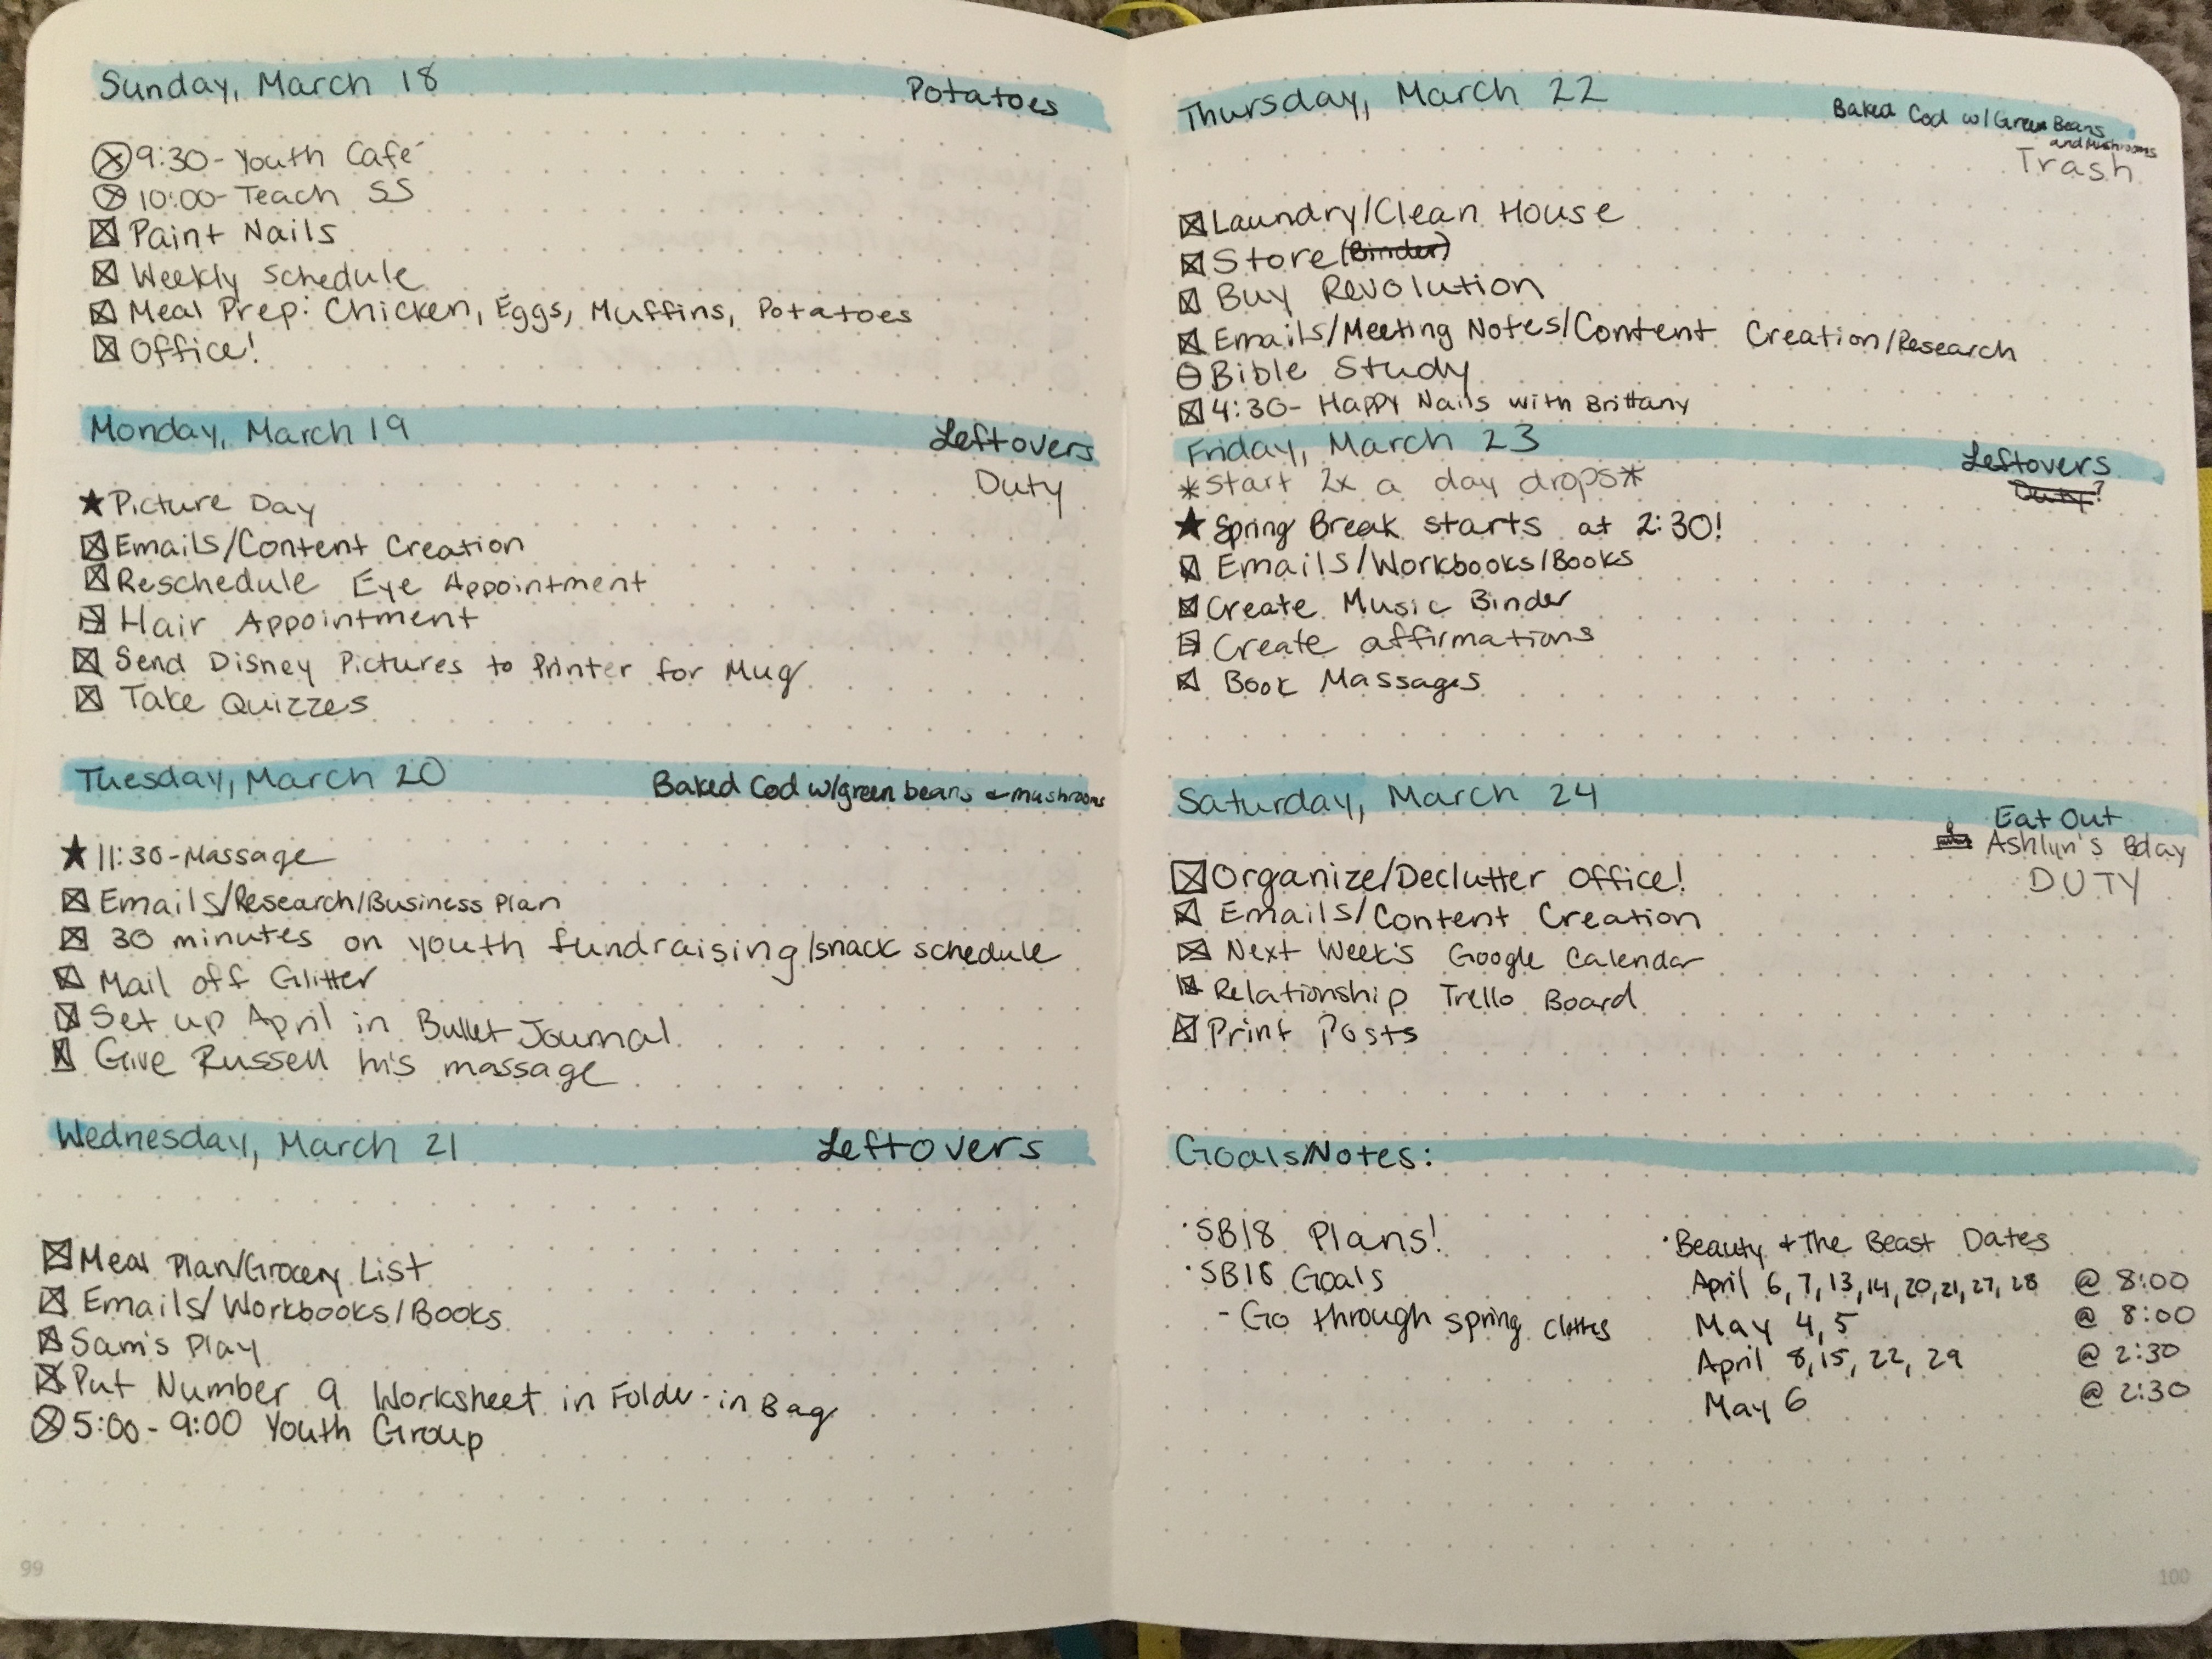 Sunday, March 18 Potatoes
9:30- Youth Café
10:00- Teach SS
Paint Nails
Weekly Schedule
Meal Prep: Chicken, Eggs, Muffins, Potatoes
Office!
Monday, March 19 Leftovers
Duty
Picture Day
Emails/Content Creation
Reschedule Eye Appointment
Hair Appointment
Send Disney Pictures to Printer for Mug
Take Quizzes
Tuesday, March 20 Baked Cod w/green beans & mushrooms
11:30-Massage
Emails/Research/Business Plan
30 minutes on youth fundraising/snack schedule
Mail off Glitter
Set up April in Bullet Journal
Give Russell his massage
Wednesday, March 21 Leftovers
Meal Plan/Grocery List
Emails/Workbooks/Books
Sam's Play
Put Number 9 Worksheet in Folder - in Bag
5:00-9:00 Youth Group
99
Thursday, March 22 Baked Cod w/Green Beans
and Mushrooms
Trash
Laundry/Clean House
Store (Binder)
Buy Revolution
Emails/Meeting Notes/Content Creation/Research
Bible Study
4:30- Happy Nails with Brittany
Friday, March 23 Leftovers
*start 2x a day drops* Duty?
Spring Break starts at 2:30!
Emails/Workbooks/Books
Create Music Binder
Create affirmations
Book Massages
Saturday, March 24 Eat Out
Ashlyn's Bday
DUTY
Organize/Declutter Office!
Emails/Content Creation
Next Week's Google Calendar
Relationship Trello Board
Print Posts
Goals/Notes:
·SB18 Plans!
·SB18 Goals
- Go through spring clothes
·Beauty + The Beast Dates
April 6, 7, 13, 14, 20, 21, 27, 28 @ 8:00
May 4, 5 @ 8:00
April 8, 15, 22, 29 @ 2:30
May 6 @ 2:30
100